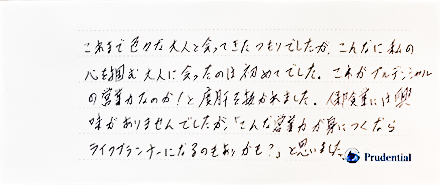 これまで色々な大人と会ってきたつもりでしたが、こんなに私の
心を掴む大人に会ったのは初めてでした。これがプルデンシャル
の営業力なのか！と度肝を抜かれました。保険業には興
味がありませんでしたが、「こんな営業力が身につくなら
ライフプランナーになるのもありかも？」と思いました。
Prudential